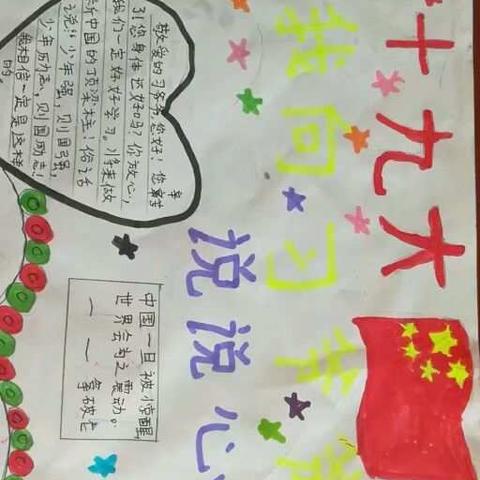 十九大
我向习爷爷
说说心
敬爱的习爷爷,您好!您辛苦
了!您身体还好吗?你放心,
我们一定好好学习。将来做
新中国的顶梁柱!俗话
说:“少年强,则国强,
少年励志、则国励志!
我相信一定是这样
的。
中国一旦被惊醒
世界会为之震动。
——拿破仑